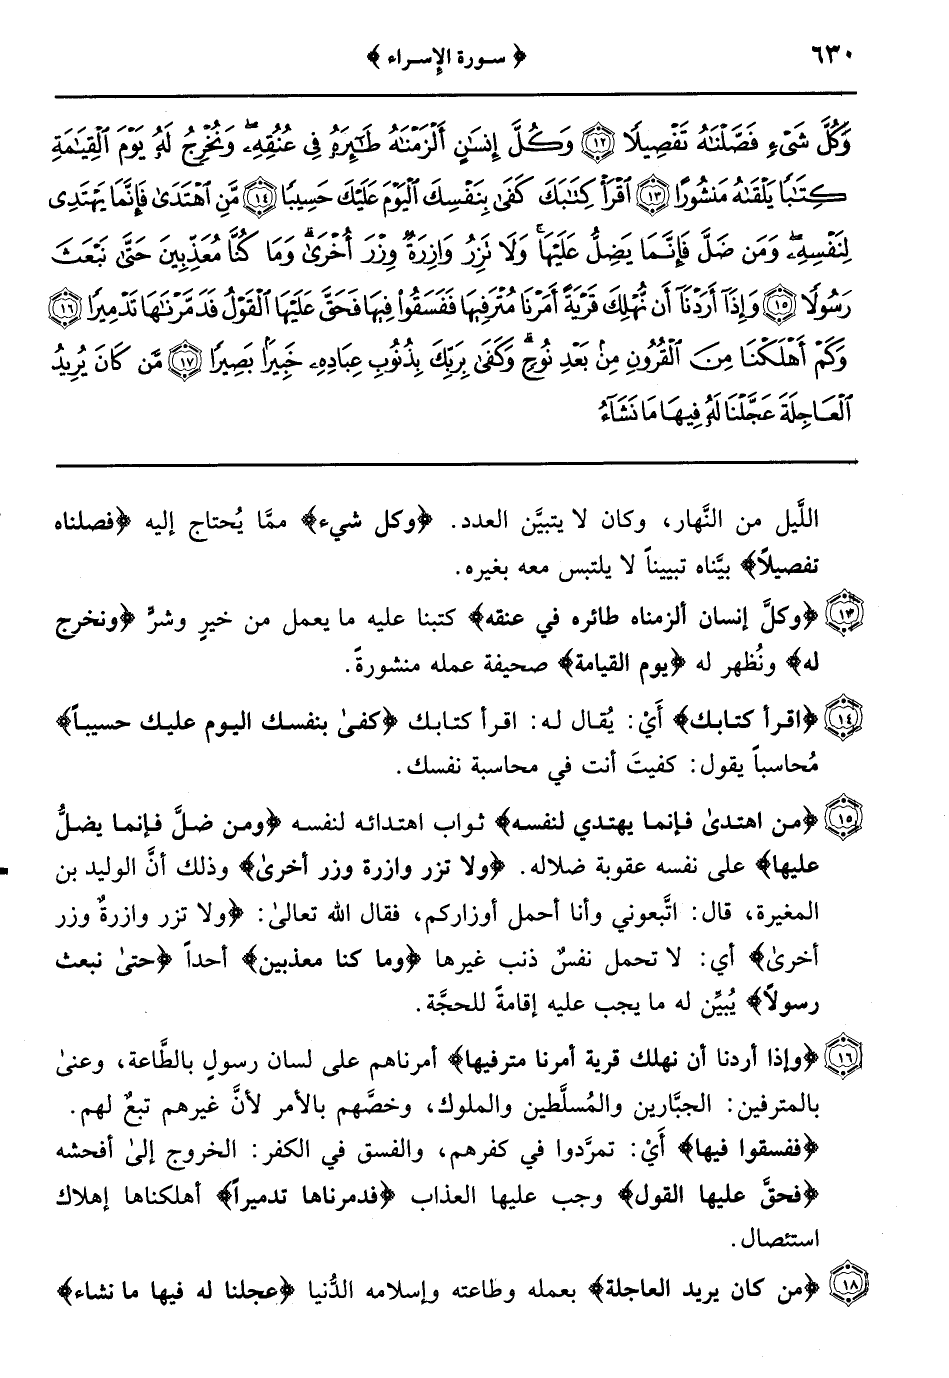 ٦٣٠
﴿ سورة الإسراء ﴾
وَكُلَّ شَىْءٍ فَصَّلْنَٰهُ تَفْصِيلًا ١٢ وَكُلَّ إِنسَٰنٍ أَلْزَمْنَٰهُ طَٰٓئِرَهُۥ فِى عُنُقِهِۦۖ وَنُخْرِجُ لَهُۥ يَوْمَ ٱلْقِيَٰمَةِ
كِتَٰبًا يَلْقَىٰهُ مَنشُورًا ١٣ ٱقْرَأْ كِتَٰبَكَ كَفَىٰ بِنَفْسِكَ ٱلْيَوْمَ عَلَيْكَ حَسِيبًا ١٤ مَّنِ ٱهْتَدَىٰ فَإِنَّمَا يَهْتَدِى
لِنَفْسِهِۦۖ وَمَن ضَلَّ فَإِنَّمَا يَضِلُّ عَلَيْهَاۚ وَلَا تَزِرُ وَازِرَةٌ وِزْرَ أُخْرَىٰۗ وَمَا كُنَّا مُعَذِّبِينَ حَتَّىٰ نَبْعَثَ
رَسُولًا ١٥ وَإِذَآ أَرَدْنَآ أَن نُّهْلِكَ قَرْيَةً أَمَرْنَا مُتْرَفِيهَا فَفَسَقُوا۟ فِيهَا فَحَقَّ عَلَيْهَا ٱلْقَوْلُ فَدَمَّرْنَٰهَا تَدْمِيرًا ١٦
وَكَمْ أَهْلَكْنَا مِنَ ٱلْقُرُونِ مِنۢ بَعْدِ نُوحٍۗ وَكَفَىٰ بِرَبِّكَ بِذُنُوبِ عِبَادِهِۦ خَبِيرًۢا بَصِيرًا ١٧ مَّن كَانَ يُرِيدُ
ٱلْعَاجِلَةَ عَجَّلْنَا لَهُۥ فِيهَا مَا نَشَآءُ
اللَّيل من النَّهار، وكان لا يتبيَّن العدد. ﴿وكل شيء﴾ ممَّا يُحتاج إليه ﴿فصلناه
تفصيلاً﴾ بيَّناه تبييناً لا يلتبس معه بغيره.
١٣ ﴿وكلَّ إنسان ألزمناه طائره في عنقه﴾ كتبنا عليه ما يعمل من خيرٍ وشرٍّ ﴿ونخرج
له﴾ ونُظهر له ﴿يوم القيامة﴾ صحيفة عمله منشورةً.
١٤ ﴿اقرأ كتابك﴾ أَيْ: يُقال له: اقرأ كتابك ﴿كفىٰ بنفسك اليوم عليك حسيباً﴾
مُحاسباً يقول: كفيتَ أنت في محاسبة نفسك.
١٥ ﴿من اهتدىٰ فإنما يهتدي لنفسه﴾ ثواب اهتدائه لنفسه ﴿ومن ضلَّ فإنما يضلُّ
عليها﴾ على نفسه عقوبة ضلاله. ﴿ولا تزر وازرة وزر أخرىٰ﴾ وذلك أنَّ الوليد بن
المغيرة، قال: اتَّبعوني وأنا أحمل أوزاركم، فقال الله تعالىٰ: ﴿ولا تزر وازرةٌ وزر
أخرىٰ﴾ أي: لا تحمل نفسٌ ذنب غيرها ﴿وما كنا معذبين﴾ أحداً ﴿حتىٰ نبعث
رسولاً﴾ يُبيِّن له ما يجب عليه إقامةً للحجَّة.
١٦ ﴿وإذا أردنا أن نهلك قرية أمرنا مترفيها﴾ أمرناهم على لسان رسولٍ بالطَّاعة، وعنىٰ
بالمترفين: الجبَّارين والمُسلَّطين والملوك، وخصَّهم بالأمر لأنَّ غيرهم تبعٌ لهم.
﴿ففسقوا فيها﴾ أَيْ: تمرَّدوا في كفرهم، والفسق في الكفر: الخروج إلىٰ أفحشه
﴿فحقَّ عليها القول﴾ وجب عليها العذاب ﴿فدمرناها تدميراً﴾ أهلكناها إهلاك
استئصال.
١٨ ﴿من كان يريد العاجلة﴾ بعمله وطاعته وإسلامه الدُّنيا ﴿عجلنا له فيها ما نشاء﴾